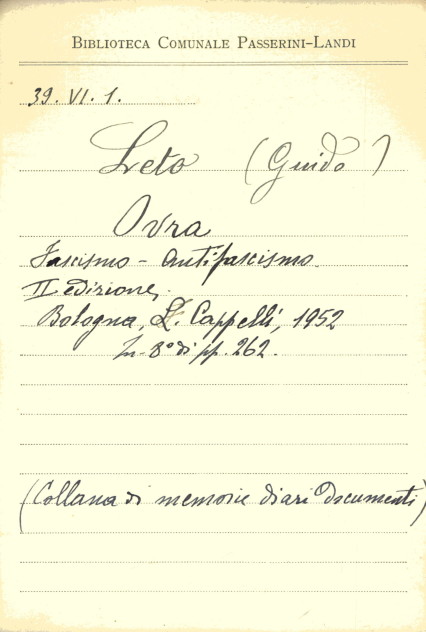 BIBLIOTECA COMUNALE PASSERINI-LANDI
39. VI. 1.
Leto (Guido)
Ovra
Fascismo - Antifascismo.
II edizione,
Bologna, L. Cappelli, 1952
In-8° di pp. 262.
(Collana di memorie diari documenti)